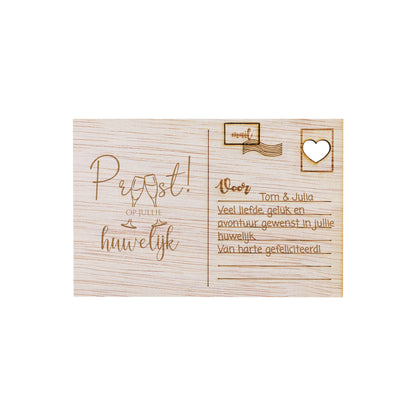 Proost!
OP JULLIE
huwelijk
mail
Voor
Tom & Julia
Veel liefde, geluk en
avontuur gewenst in jullie
huwelijk.
Van harte gefeliciteerd!